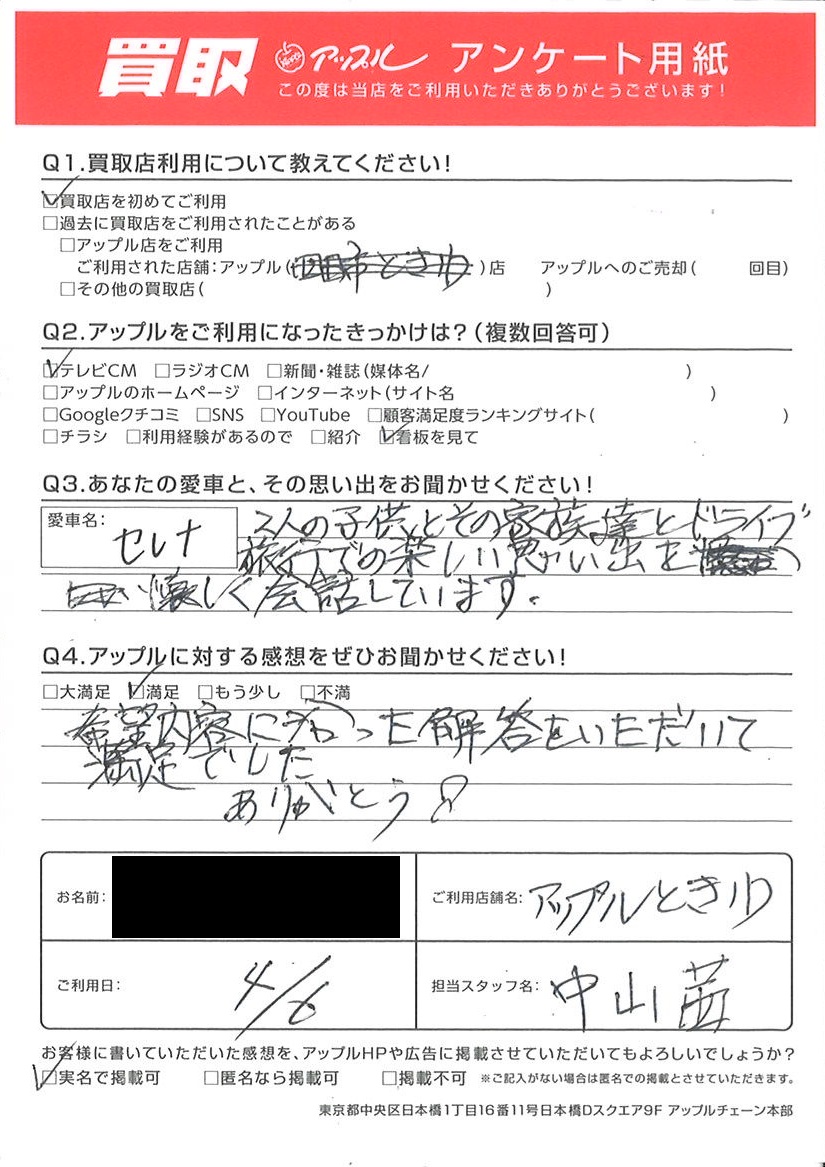 買取 アップル アンケート用紙
この度は当店をご利用いただきありがとうございます！
Q1.買取店利用について教えてください！
☑買取店を初めてご利用
□過去に買取店をご利用されたことがある
□アップル店をご利用
ご利用された店舗：アップル（四日市ときわ）店 アップルへのご売却（ 回目）
□その他の買取店（ ）
Q2.アップルをご利用になったきっかけは？（複数回答可）
☑テレビCM □ラジオCM □新聞・雑誌（媒体名/ ）
□アップルのホームページ □インターネット（サイト名 ）
□Googleクチコミ □SNS □YouTube □顧客満足度ランキングサイト（ ）
□チラシ □利用経験があるので □紹介 ☑看板を見て
Q3.あなたの愛車と、その思い出をお聞かせください！
愛車名： セレナ
2人の子供とその家族達とドライブ
旅行での楽しい思い出を
懐しく会話しています。
Q4.アップルに対する感想をぜひお聞かせください！
□大満足 ☑満足 □もう少し □不満
希望内容に沿った解答をいただいて
満足でした
ありがとう
お名前：
ご利用店舗名： アップルときわ
ご利用日： 4/6
担当スタッフ名： 中山茜
お客様に書いていただいた感想を、アップルHPや広告に掲載させていただいてもよろしいでしょうか？
☑実名で掲載可 □匿名なら掲載可 □掲載不可 ※ご記入がない場合は匿名での掲載とさせていただきます。
東京都中央区日本橋1丁目16番11号日本橋Dスクエア9F アップルチェーン本部